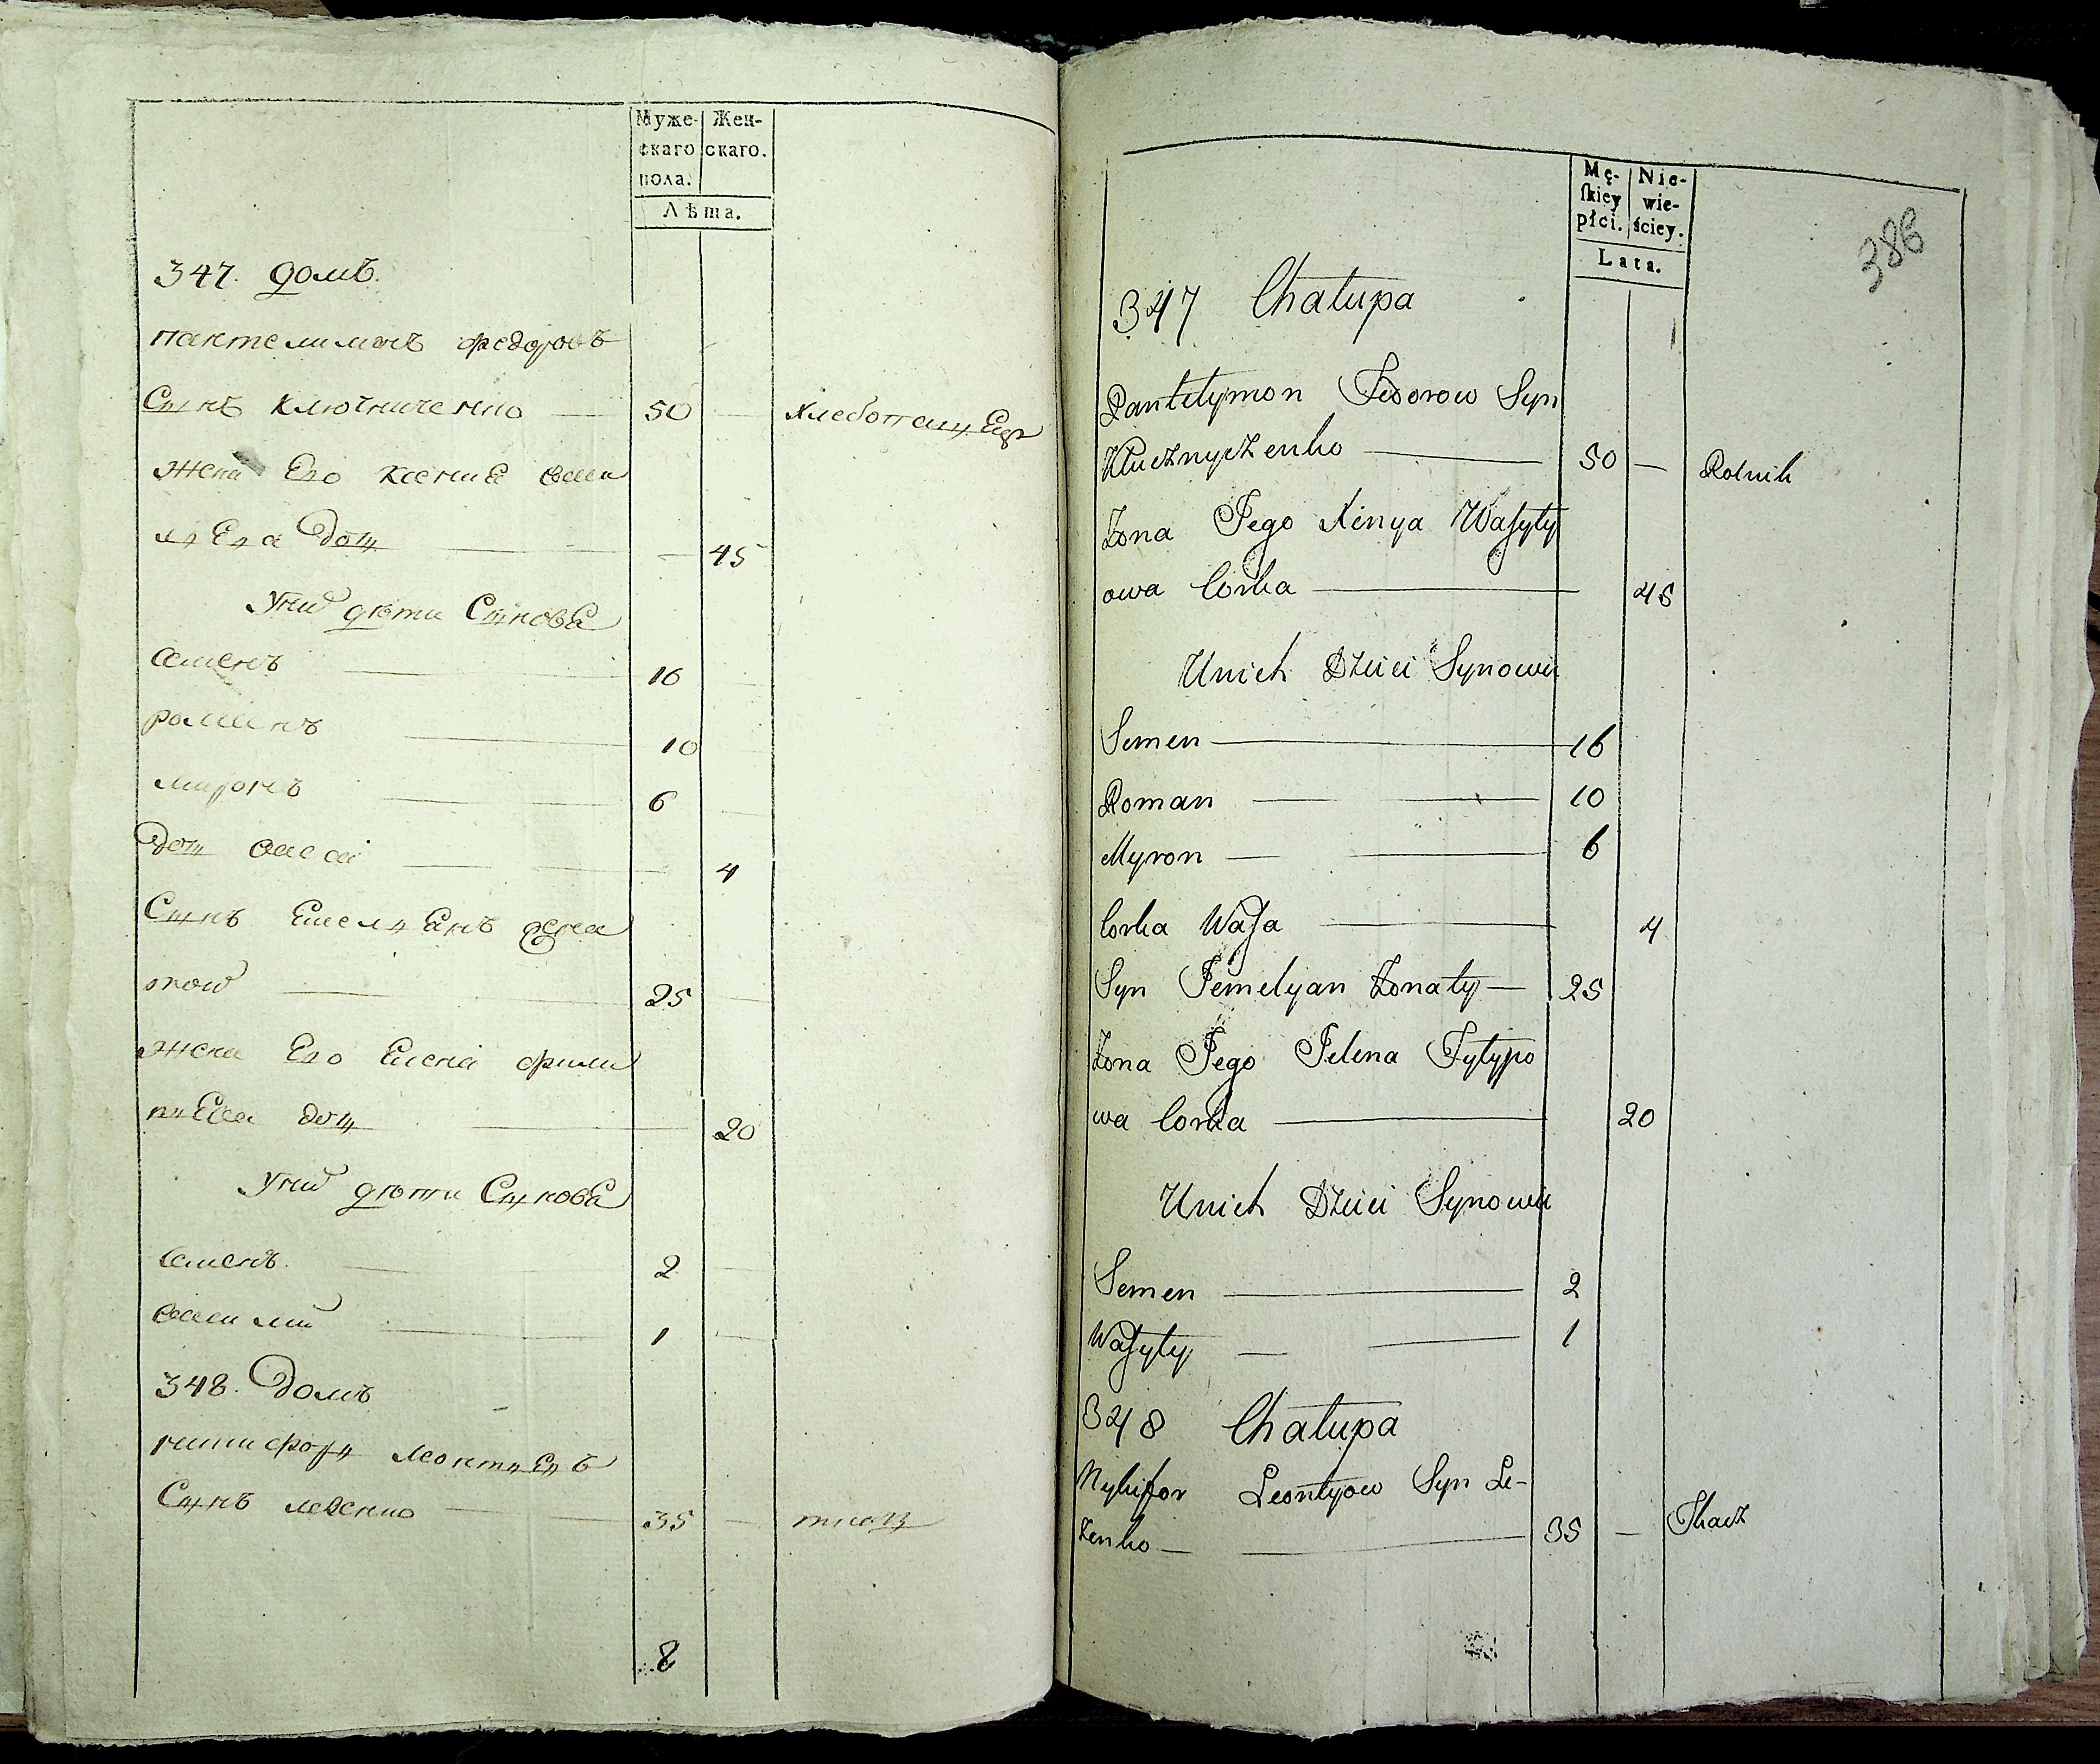 Муже-
скаго
пола.
Жен-
скаго.
Лѣта.
347. домъ.
пантелимонъ федоровъ
Сынъ ключниченко — 50 — хлебопашецъ
жена Его ксения васи
лыева доч — 45
Уних дѣти Сыновя
семенъ — 16
романъ — 10
миронъ — 6
доч васа — 4
Сынъ Емелянъ жена
тои — 25
жена Его Елена фили
пыева доч — 20
Уних дѣти Сыновя
семенъ — 2
васили — 1
348. домъ
никифоръ леонтыевъ
Сынъ лезенко — 35 — ткачъ
8
Mę-
ſkiey
płci.
Nie-
wie-
ściey.
Lata.
386
347 Chałupa
Pantełymon Fedorow Syn
Kłucznyczenko — 50 — Rolnik
Zona Jego Xenya Waſyły
owa Corka — 45
Unich Dzieci Synowie
Semen — 16
Roman — 10
Myron — 6
Corka Waſa — 4
Syn Jemelyan Zonaty — 25
Zona Jego Jełena Fyłypo
wa Corka — 20
Unich Dzieci Synowie
Semen — 2
Waſyły — 1
348 Chałupa
Nykifor Leontyow Syn Le-
zenko — 35 — Tkacz